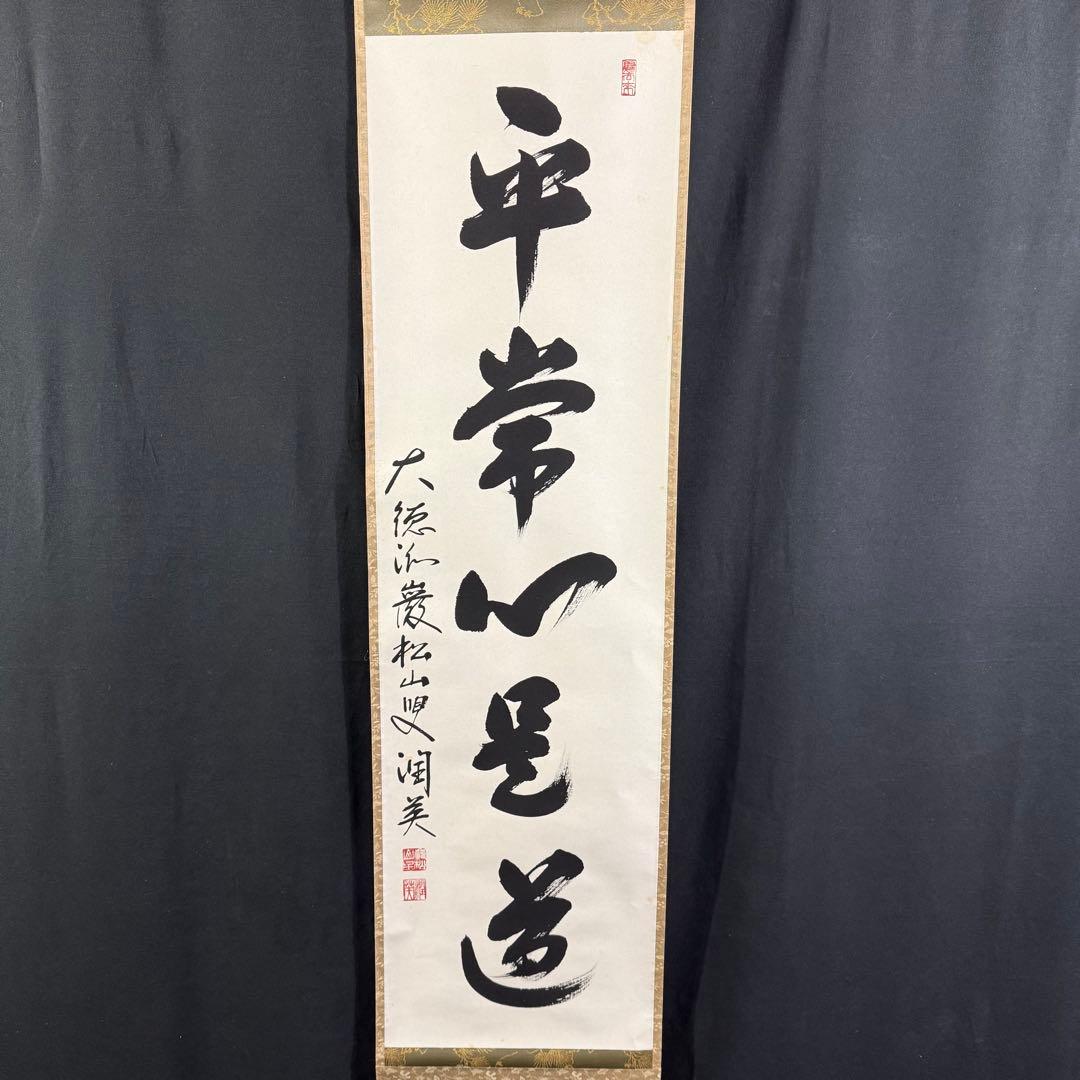 平常心是道
大徳派巌松山叟潤英